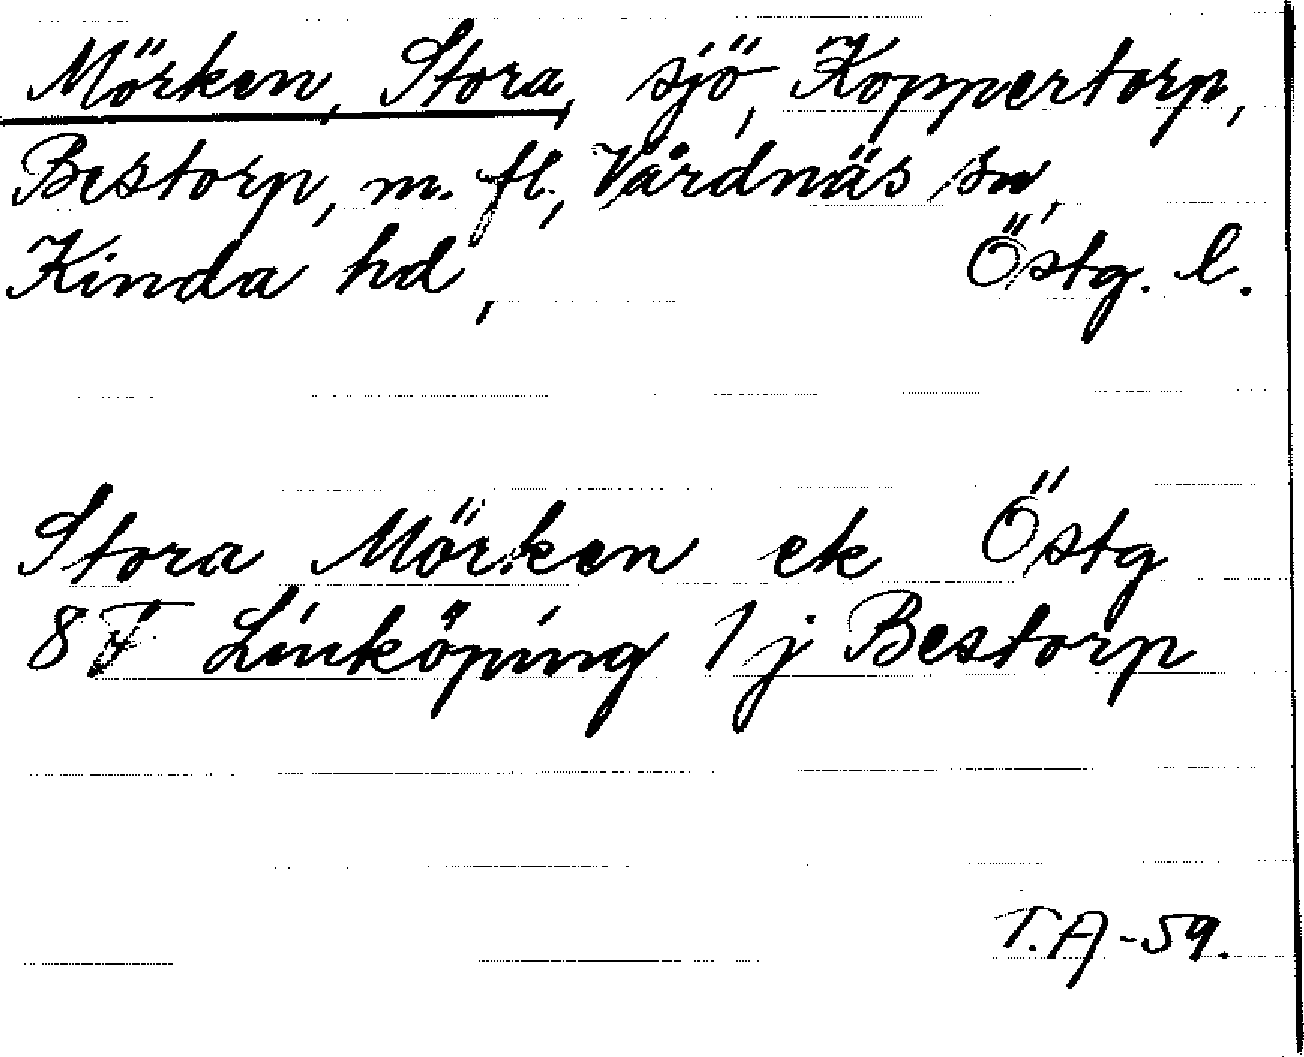 Mörken, Stora, sjö, Koppertorp,
Bestorp, m. fl., Vårdnäs sn,
Kinda hd, Östg. l.
Stora Mörken ek Östg
8F Linköping 1j Bestorp
T.A-59.